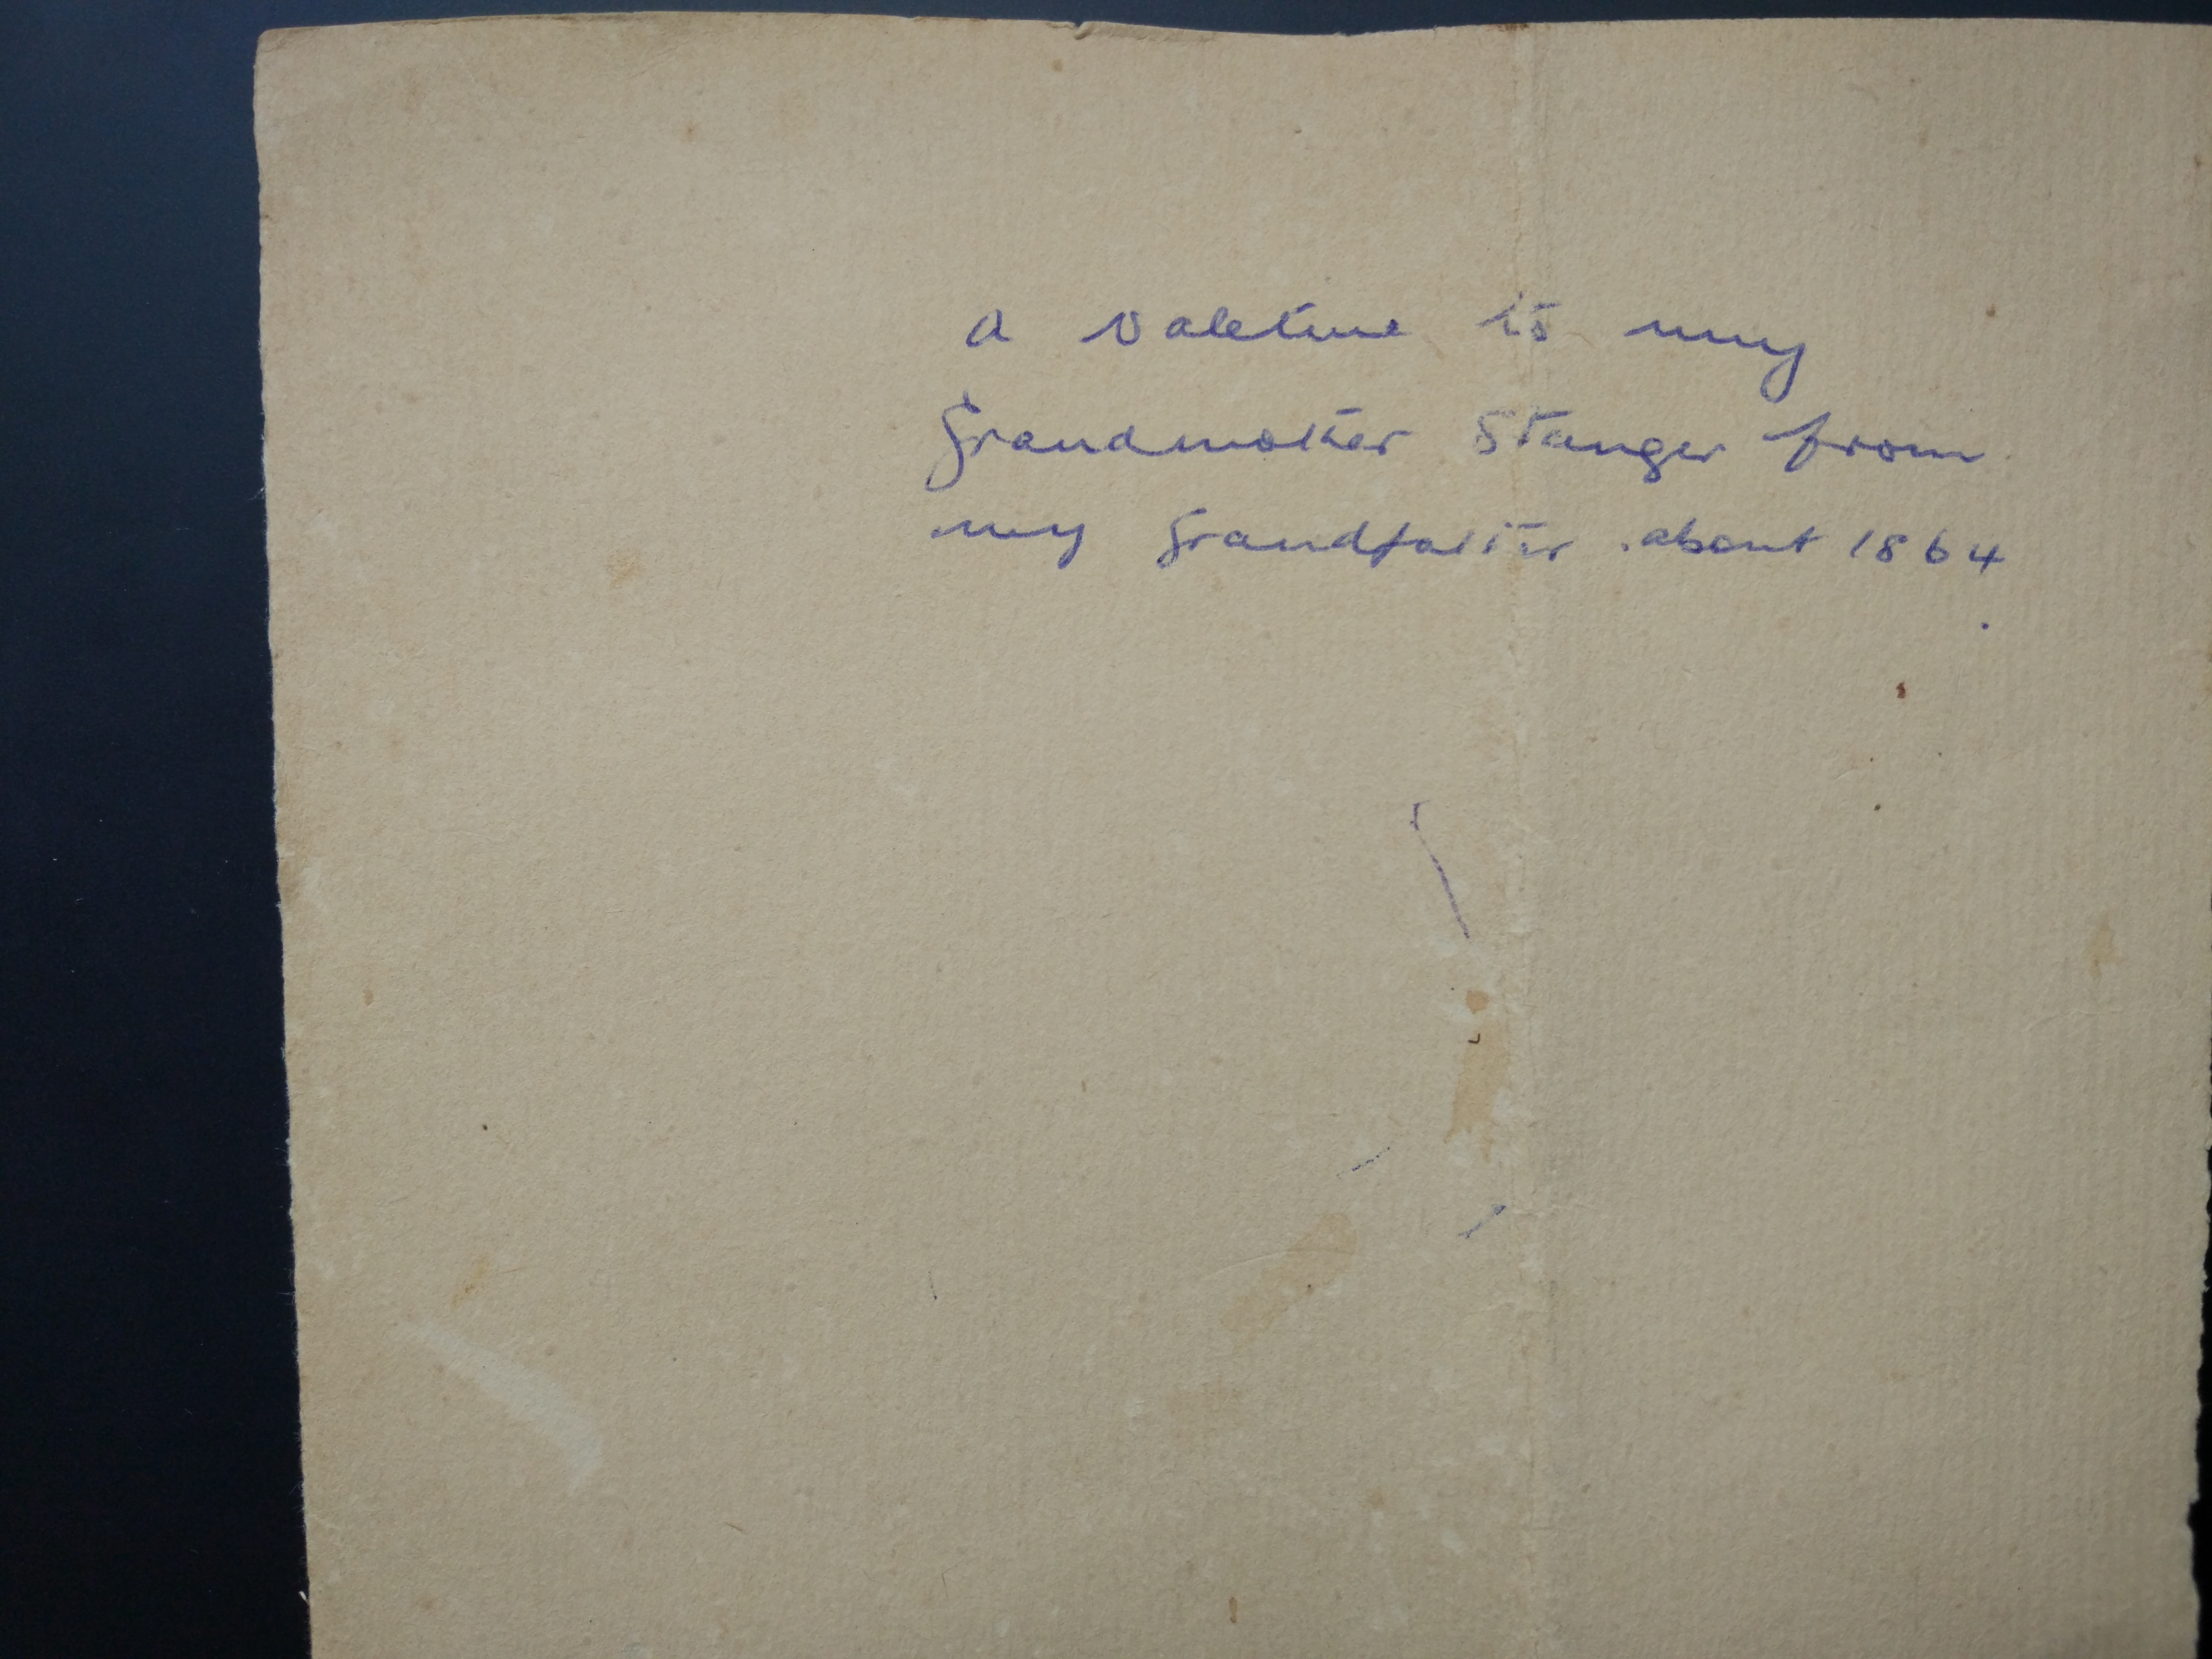 a valetine to my
Grandmother Stanger from
my Grandfather about 1864